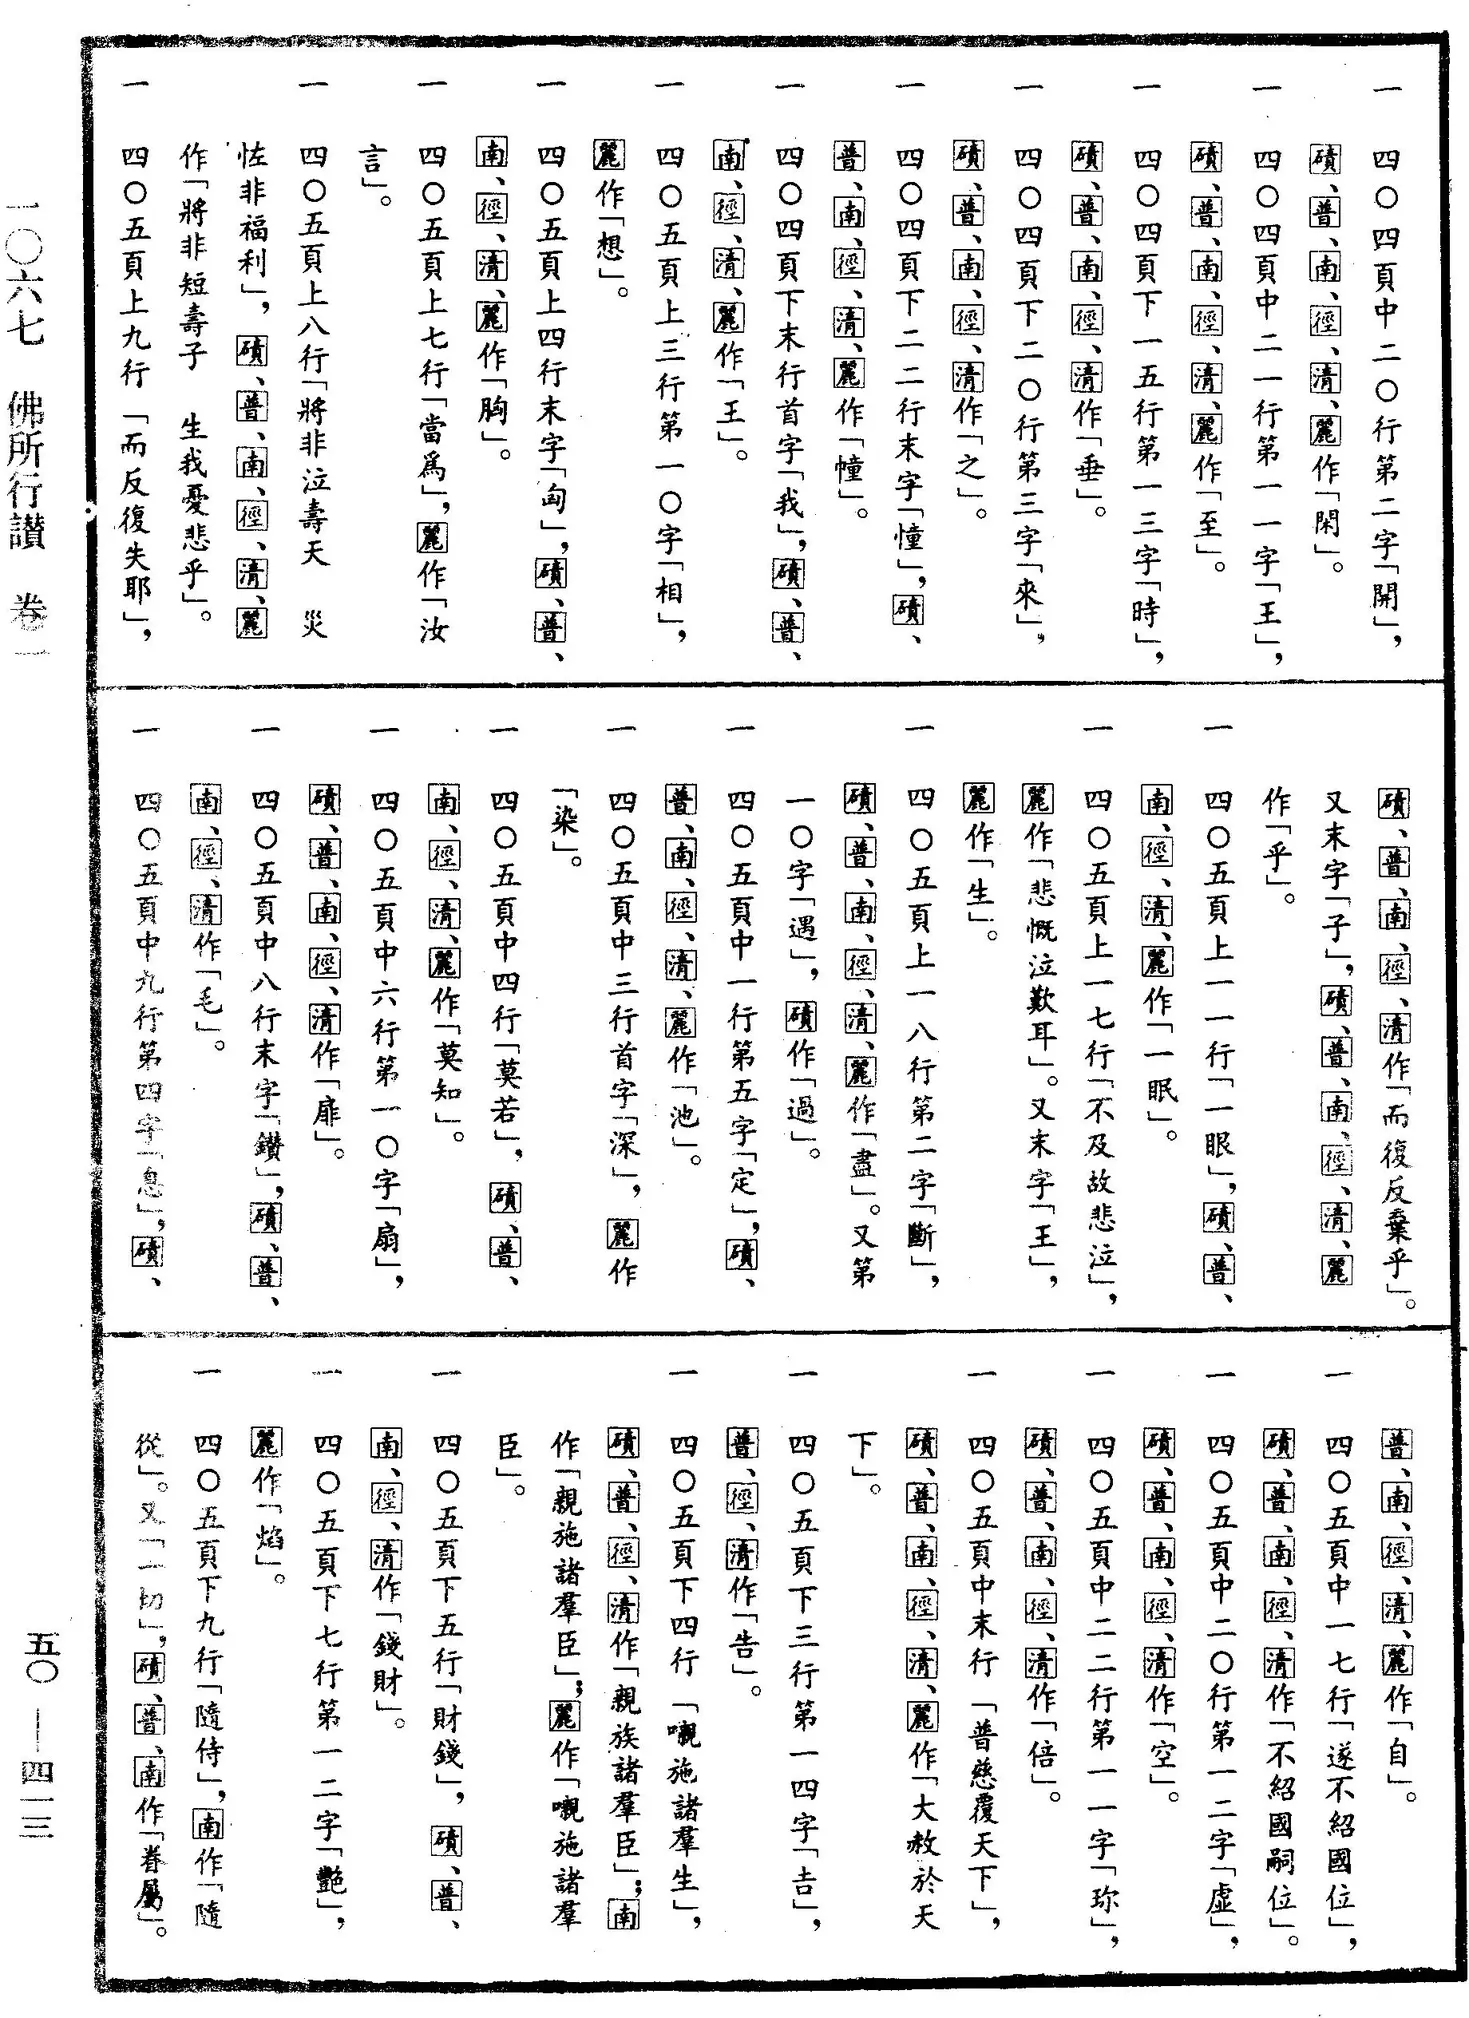 一　四〇四頁中二〇行第二字「開」，
磧、普、南、徑、清、麗作「閑」。
一　四〇四頁中二一行第一一字「王」，
磧、普、南、徑、清、麗作「至」。
一　四〇四頁下一五行第一三字「時」，
磧、普、南、徑、清作「垂」。
一　四〇四頁下二〇行第三字「來」，
磧、普、南、徑、清作「之」。
一　四〇四頁下二二行末字「憧」，磧、
普、南、徑、清、麗作「幢」。
一　四〇四頁下末行首字「我」，磧、普、
南、徑、清、麗作「王」。
一　四〇五頁上三行第一〇字「相」，
麗作「想」。
一　四〇五頁上四行末字「匈」，磧、普、
南、徑、清、麗作「胸」。
一　四〇五頁上七行「當爲」，麗作「汝
言」。
一　四〇五頁上八行「將非泣壽夭　災
怪非福利」，磧、普、南、徑、清、麗
作「將非短壽子　生我憂悲乎」。
一　四〇五頁上九行「而反復失耶」，
磧、普、南、徑、清作「而復反棄乎」。
又末字「子」，磧、普、南、徑、清、麗
作「乎」。
一　四〇五頁上一一行「一眼」，磧、普、
南、徑、清、麗作「一眠」。
一　四〇五頁上一七行「不及故悲泣」，
麗作「悲慨泣歎耳」。又末字「王」，
麗作「生」。
一　四〇五頁上一八行第二字「斷」，
磧、普、南、徑、清、麗作「盡」。又第
一〇字「遇」，磧作「過」。
一　四〇五頁中一行第五字「定」，磧、
普、南、徑、清、麗作「池」。
一　四〇五頁中三行首字「深」，麗作
「染」。
一　四〇五頁中四行「莫若」，磧、普、
南、徑、清、麗作「莫知」。
一　四〇五頁中六行第一〇字「扇」，
磧、普、南、徑、清作「扉」。
一　四〇五頁中八行末字「鑽」，磧、普、
南、徑、清作「毛」。
一　四〇五頁中九行第四字「息」，磧、
普、南、徑、清、麗作「自」。
一　四〇五頁中一七行「遂不紹國位」，
磧、普、南、徑、清作「不紹國嗣位」。
一　四〇五頁中二〇行第一二字「虛」，
磧、普、南、徑、清作「空」。
一　四〇五頁中二二行第一一字「珎」，
磧、普、南、徑、清作「倍」。
一　四〇五頁中末行「普慈覆天下」，
磧、普、南、徑、清、麗作「大赦於天
下」。
一　四〇五頁下三行第一四字「吉」，
普、徑、清作「告」。
一　四〇五頁下四行「嚫施諸羣生」，
磧、普、徑、清作「親族諸羣臣」；南
作「親施諸羣臣」；麗作「嚫施諸羣
臣」。
一　四〇五頁下五行「財錢」，磧、普、
南、徑、清作「錢財」。
一　四〇五頁下七行第一二字「艷」，
麗作「焰」。
一　四〇五頁下九行「隨侍」，南作「隨
從」。又「一切」，磧、普、南作「眷屬」。
一〇六七　佛所行讃　卷一
五〇——四一三